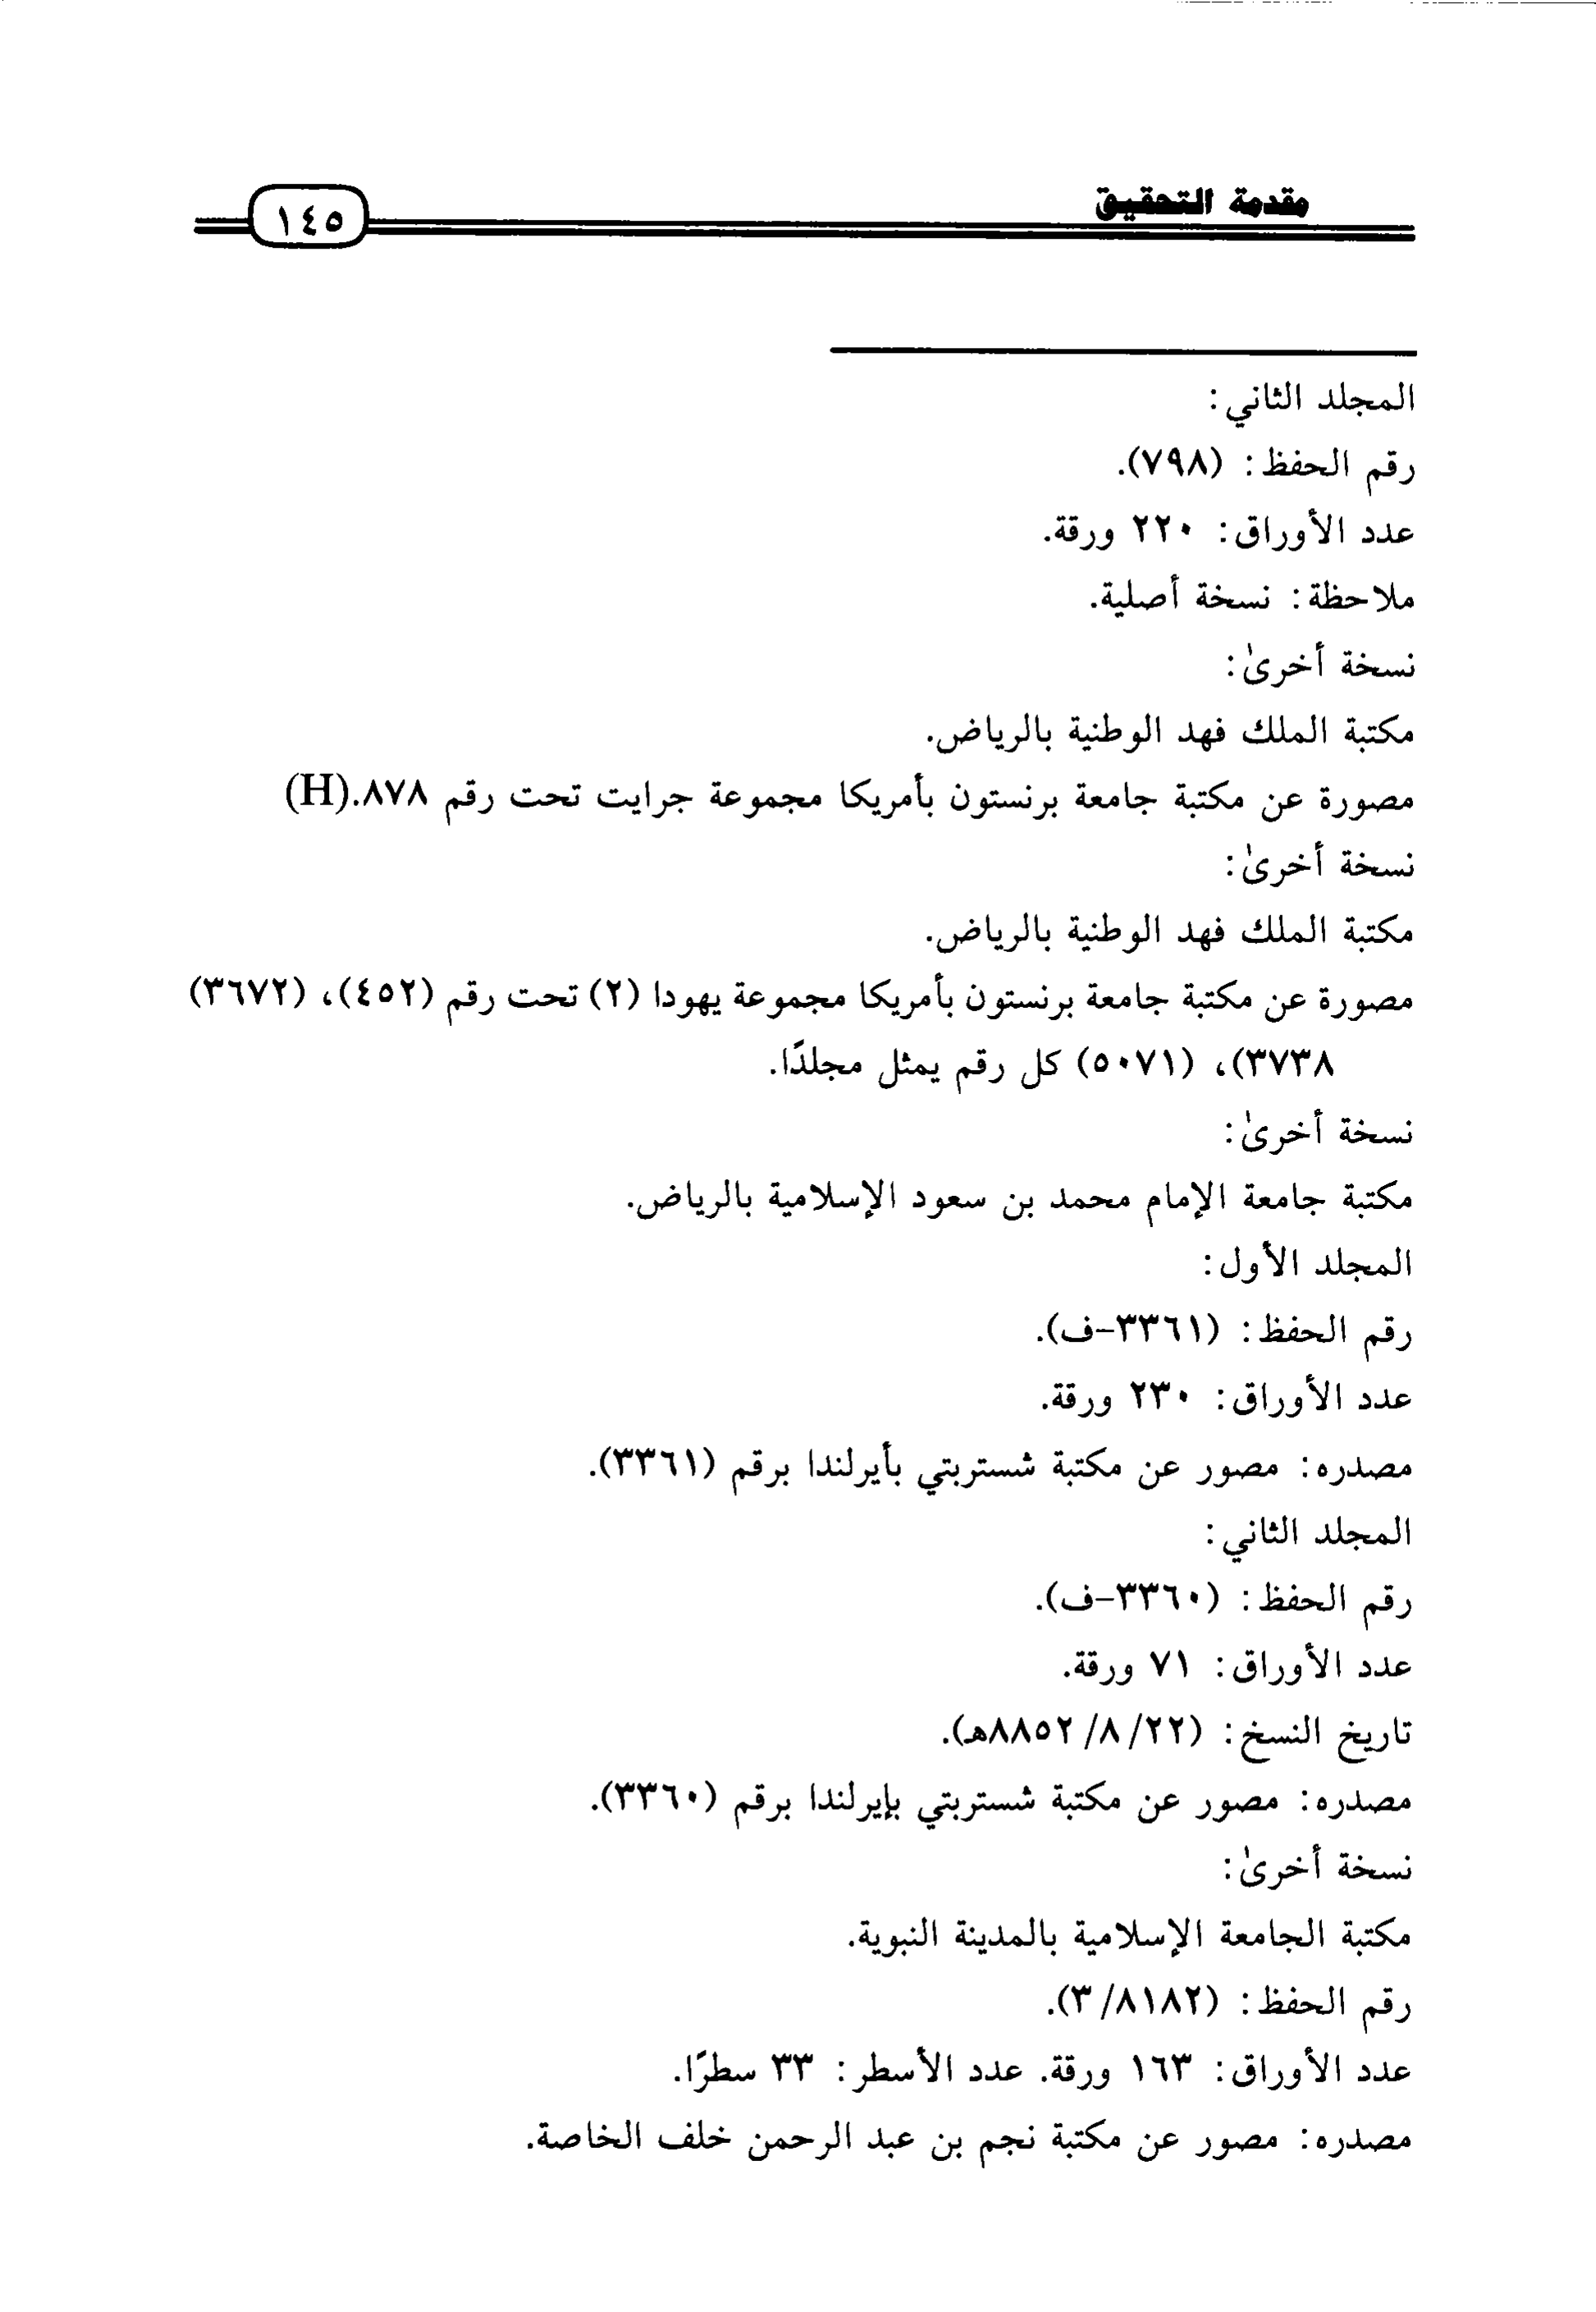 مقدمة التحقيق
١٤٥
المجلد الثاني:
رقم الحفظ: (٧٩٨).
عدد الأوراق: ٢٢٠ ورقة.
ملاحظة: نسخة أصلية.
نسخة أخرىٰ:
مكتبة الملك فهد الوطنية بالرياض.
مصورة عن مكتبة جامعة برنستون بأمريكا مجموعة جرايت تحت رقم ٨٧٨.(H)
نسخة أخرىٰ:
مكتبة الملك فهد الوطنية بالرياض.
مصورة عن مكتبة جامعة برنستون بأمريكا مجموعة يهودا (٢) تحت رقم (٤٥٢)، (٣٦٧٢)
٣٧٣٨)، (٥٠٧١) كل رقم يمثل مجلدًا.
نسخة أخرىٰ:
مكتبة جامعة الإمام محمد بن سعود الإسلامية بالرياض.
المجلد الأول:
رقم الحفظ: (٣٣٦١-ف).
عدد الأوراق: ٢٣٠ ورقة.
مصدره: مصور عن مكتبة شستربتي بأيرلندا برقم (٣٣٦١).
المجلد الثاني:
رقم الحفظ: (٣٣٦٠-ف).
عدد الأوراق: ٧١ ورقة.
تاريخ النسخ: (٢٢/ ٨/ ٨٨٥٢هـ).
مصدره: مصور عن مكتبة شستربتي بإيرلندا برقم (٣٣٦٠).
نسخة أخرىٰ:
مكتبة الجامعة الإسلامية بالمدينة النبوية.
رقم الحفظ: (٨١٨٢/ ٣).
عدد الأوراق: ١٦٣ ورقة. عدد الأسطر: ٣٣ سطرًا.
مصدره: مصور عن مكتبة نجم بن عبد الرحمن خلف الخاصة.